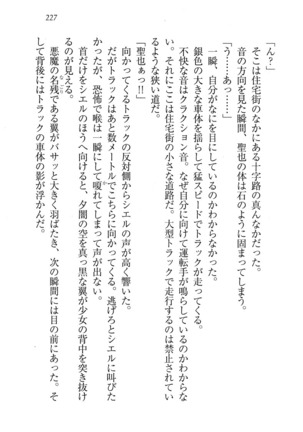 227
「ん？」
そこは住宅街のなかにある十字路の真んなかだった。
音の方向を見た瞬間、聖也の体は石のように固まってしまう。
「う……あっ……」
一瞬、自分がなにを目にしているのかわからなかった。
銀色の大きな車体を揺らして猛スピードでトラックが走ってくる。
不快なクラクション音。なぜ自分に向けて運転手が鳴らしているのかわからな
い。それにここは住宅街の小さな道路だ。大型トラックで走行するのは禁止されてい
るような狭い道だ。
「聖也ぁっ!!」
向かってくるトラックの反対側からシエルの声が高く響いた。
だがトラックはあと数メートルでこちらに向かってくる。逃げろとシエルに叫びた
かったが、恐怖で喉は一瞬にして嗄れてしまって声が出ない。
首だけをシエルのほうへ向けると、夕闇の空を真っ黒な翼が少女の背中を突き抜け
るのが見える。
悪魔の名残である翼がバサッと大きく羽ばたき、次の瞬間には目の前にあった。そ
して背後にはトラックの車体の影が浮かんだ。